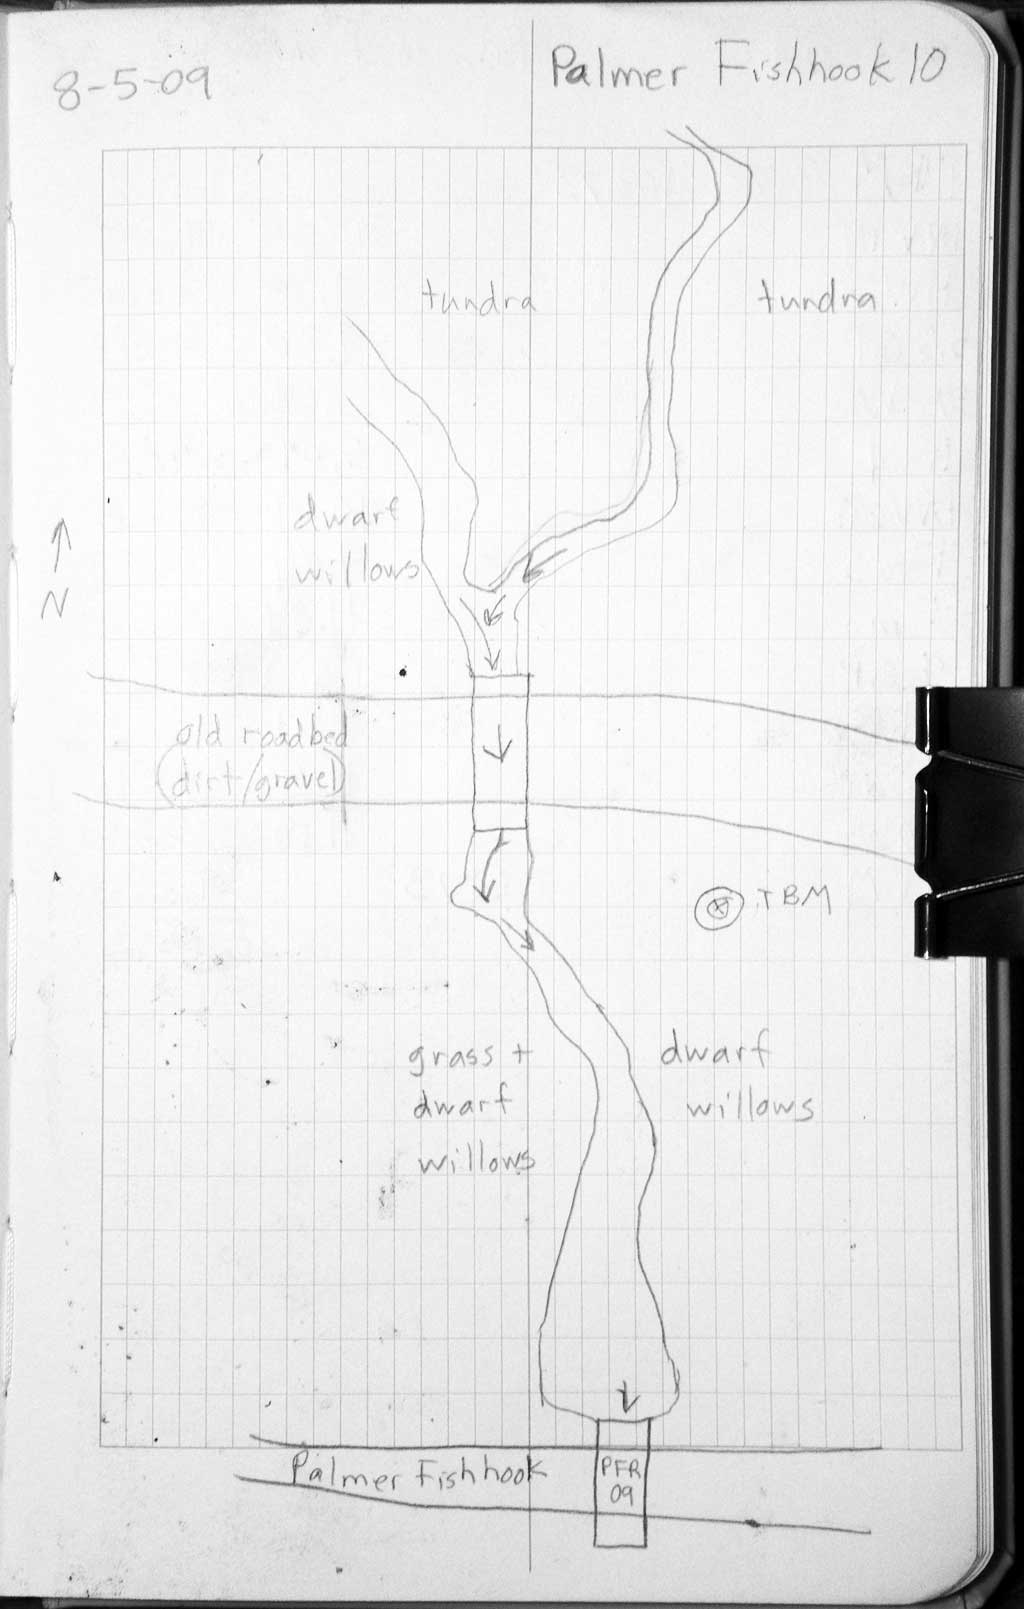 8-5-09
Palmer Fishhook 10
tundra
tundra
dwarf
willows
N
old roadbed
(dirt/gravel)
TBM
grass +
dwarf
willows
dwarf
willows
Palmer Fishhook
PFR
09